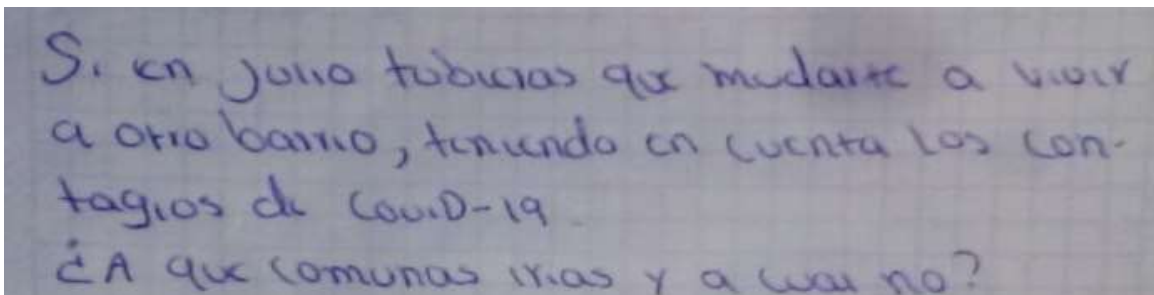 Si en Julio tubieras que mudarte a vivir
a otro barrio, teniendo en cuenta los con-
tagios de CoviD-19
¿A que comunas irias y a cual no?